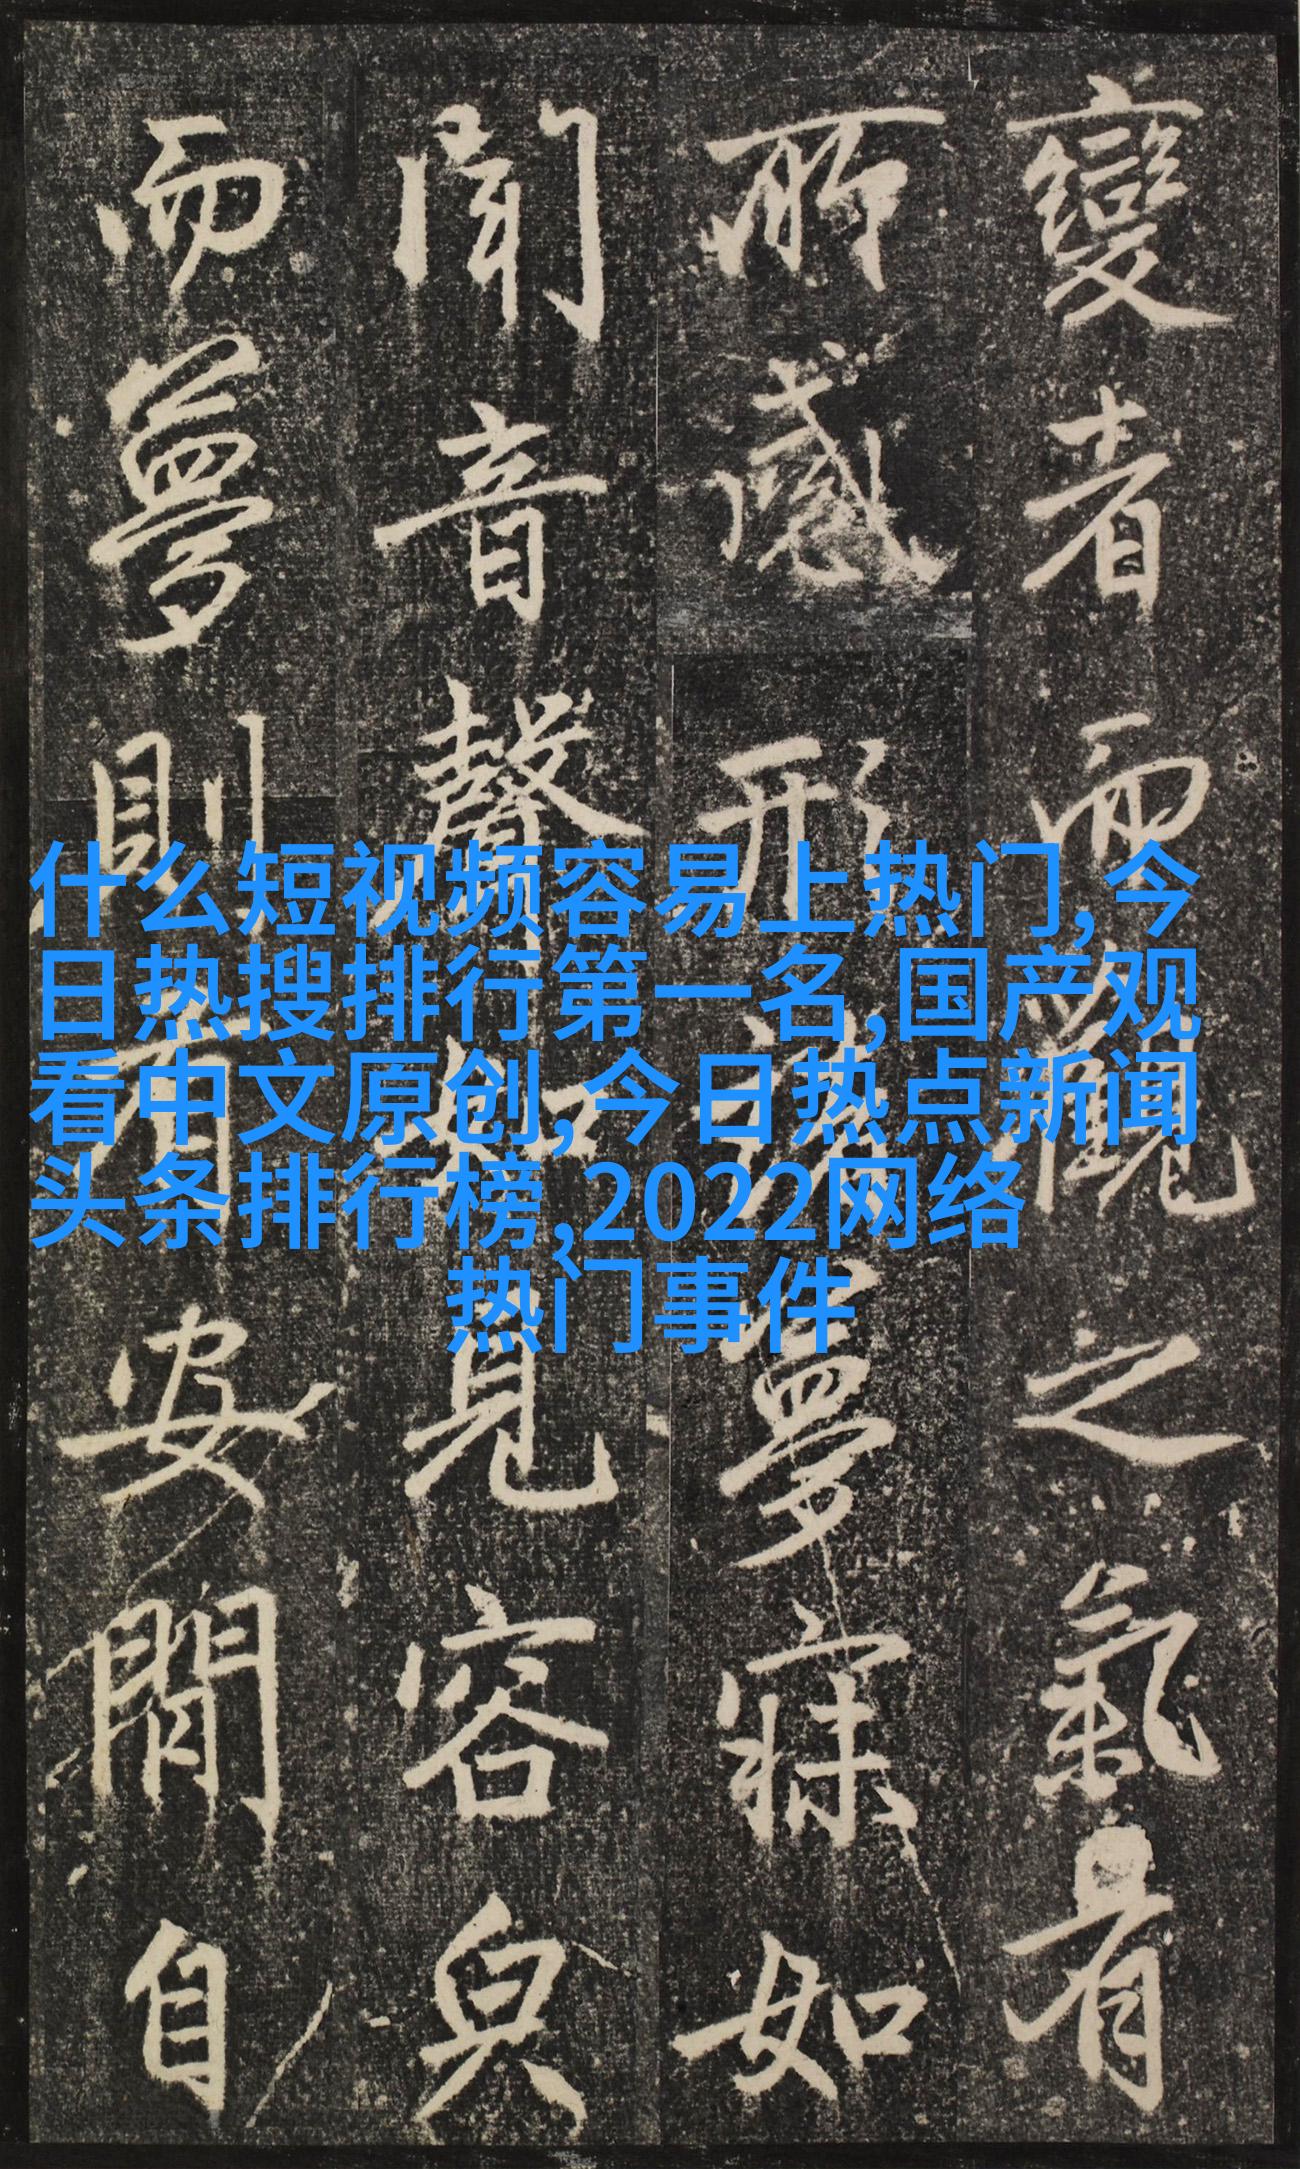 變者而觀之氣有
所感形諸夢寐如
聞音聲如見容皃
而夢則有安閒自
什么短视频容易上热门,今
日热搜排行第一名,国产观
看中文原创,今日热点新闻
头条排行榜,2022网络
热门事件